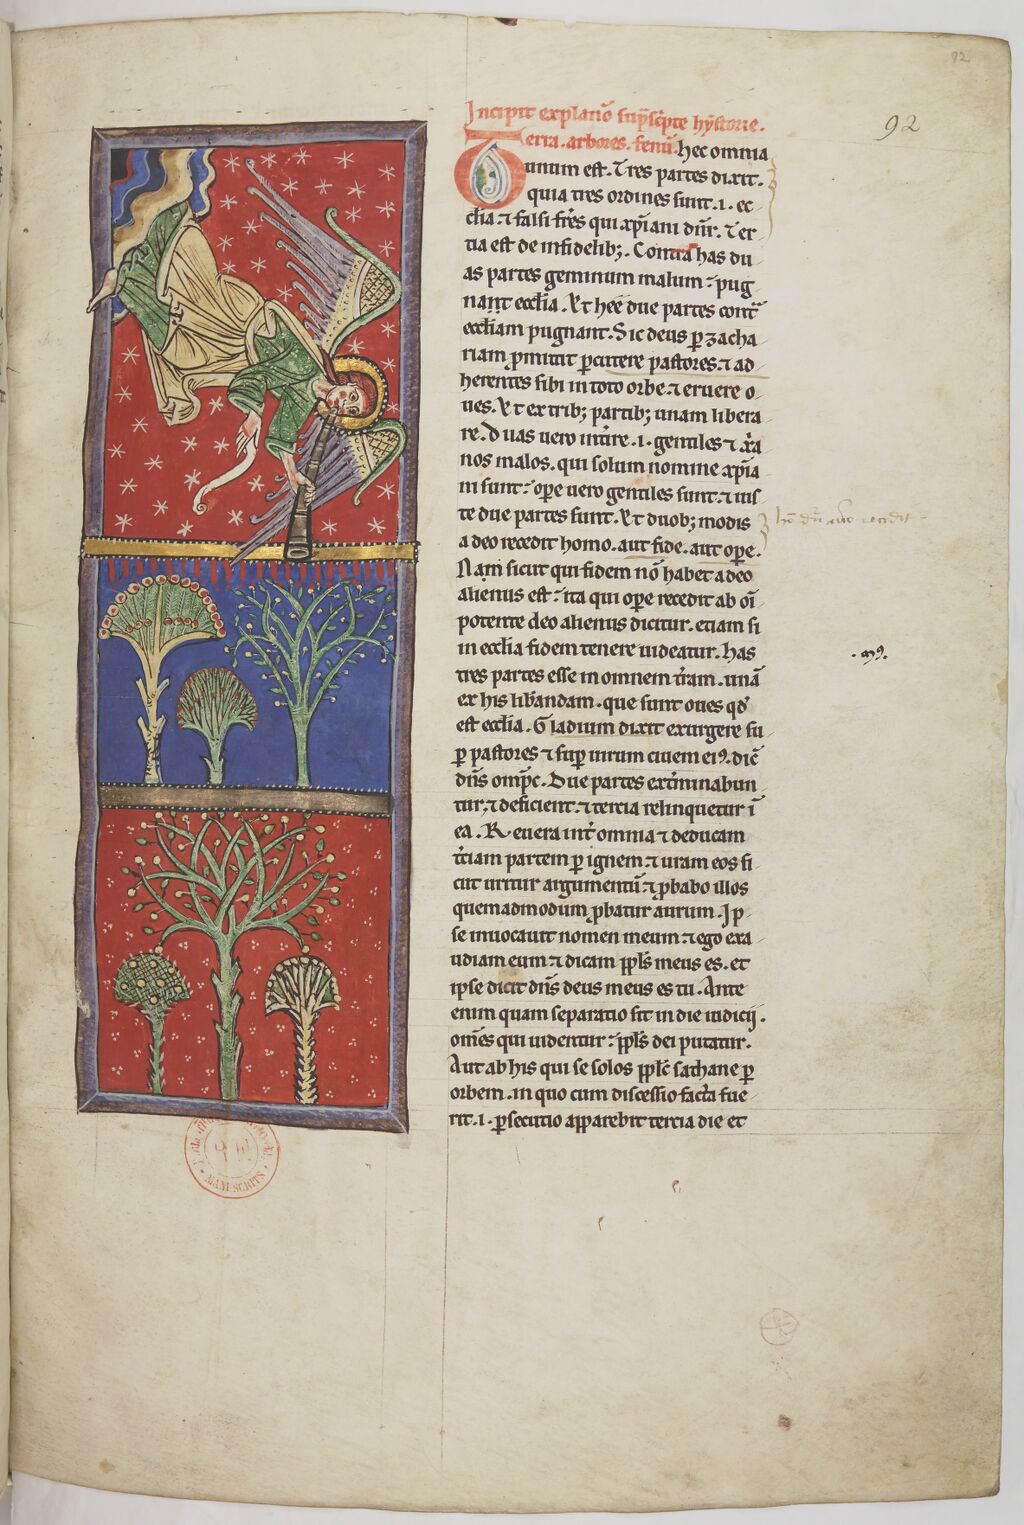 92
92
Incipit explanatio sup̄sc̄pte hystorie.
Terra. arbores. fenū. hec omnia
unum est. Tres partes dixit.
quia tres ordines sunt. .i. ec
cl̄ia ⁊ falsi fr̄es qui xp̄iani dn̄r. Ter
tia est de infidelib;. Contra has du
as partes geminum malum: pug
nant eccl̄ia. Et heē due partes contᷓ
eccl̄iam pugnant. Sic deus ꝑ zacha
riam ꝓmittit ꝑcutere pastores. ⁊ ad
herentes sibi in toto orbe. ⁊ eruere o
ues. Et ex trib; partib; unam libera
re. Duas uero int̄ire .i. gentiles ⁊ xp̄ia
nos malos. qui solum nomine xp̄ia
ni sunt: oꝑe uero gentiles sunt. ⁊ iis
te due partes sunt. Et duob; modis
a deo recedit homo. aut fide. aut oꝑe.
Nam sicut qui fidem nō habet a deo
alienus est: ita qui oꝑe recedit ab oī
potente deo alienus dicitur. etiam si
in eccl̄ia fidem tenere uideatur. has
tres partes esse in omnem t̄ram. unā
ex his lib̄andam. que sunt oues qd̄
est eccl̄ia. Gladium dixit exurgere su
ꝑ pastores ⁊ suꝑ uirum ciuem eiꝰ. dic̄
dn̄s omp̄c. Due partes ext̄minabun
tur. ⁊ deficient. ⁊ tercia relinquetur ī
ea. Reuera int̄ omnia ⁊ deducam
t̄ciam partem ꝑ ignem ⁊ uram eos si
cut uritur argumentū ⁊ ꝓbabo illos
quemadmodum ꝓbatur aurum. Ip
se inuocauit nomen meum ⁊ ego exa
udiam eum ⁊ dicam ppl̄s meus es. et
ipse dicit dn̄s deus meus es tu. Ante
enim quam separatio fit in die iudicij.
om̄es qui uidentur: ppl̄s dei putatur.
Aut ab his qui se solos ppl̄c sathane ꝑ
orbem. in quo cum discessio facta fue
rit .i. ꝑsecutio apparebit tercia die et
MANUSCRITS